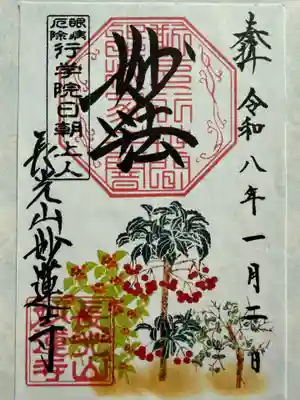 奉拝
令和八年一月二日
妙法
眼病
厄除
行学院日朝上人
長光山妙蓮寺